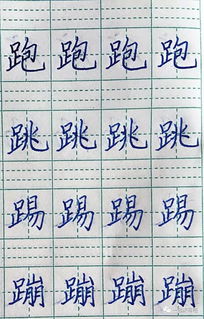 跑 跑 跑 跑
跳 跳 跳 跳
踢 踢 踢 踢
蹦 蹦 蹦 蹦